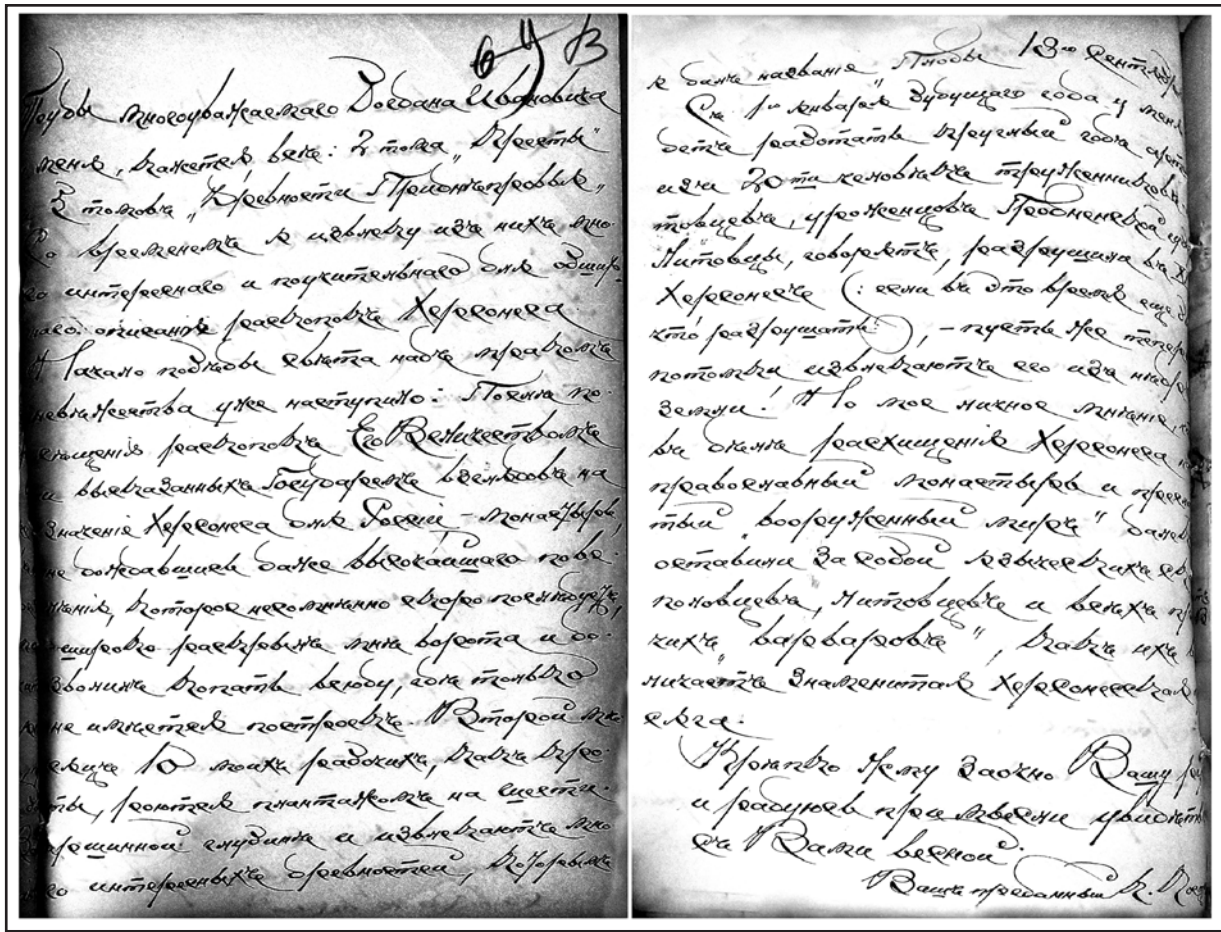 Труды многоуважаемаго Богдана Ивановича
меня, кажется, всѣ: 2 тома „Кресты"
3 томовъ „Древности Приднѣпровья"
Со временемъ я извлеку изъ нихъ мно-
го интереснаго и поучительнаго для обшир-
наго описанія раскопокъ Херсонеса.
Начало побѣды свѣта надъ мракомъ
невѣжества уже наступило: Послѣ по-
сѣщенія раскопокъ Его Величествомъ
и высказанныхъ Государемъ взглядовъ на
значеніе Херсонеса для Россіи – монастырь,
не дождавшись даже высочайшаго пове-
лѣнія, которое несомнѣнно скоро послѣдуетъ,
широко раскрылъ мнѣ ворота и до-
зволилъ копать всюду, гдѣ только
не имѣется построекъ. Второй мѣ-
сяцъ 10 моихъ рабочихъ, какъ кро-
ты, роются плантажомъ на шести-
аршинной глубинѣ и извлекаютъ мно
го интересныхъ древностей, которымъ
я далъ названіе „Плоды 13го Сентябр
Съ 1го января будущаго года у меня
детъ работать круглый годъ арте
изъ 20ти человѣкъ труженниковъ
товцевъ, уроженцовъ Гродненской гу
Литовцы, говорятъ, разрушили въ X
Херсонесъ (: если въ это время еще б
что разрушать:), – пусть же тепер
потомки извлекаютъ его изъ нѣдр
земли! Но мое личное мнѣніе,
въ дѣлѣ расхищенія Херсонеса
православный монастырь и пресло
тый „вооруженный миръ" далек
оставили за собой языческихъ
половцевъ, литовцевъ и всѣхъ пр
чихъ „варваровъ", какъ ихъ
личаетъ знаменитая Херсонесская
сяга.
Крѣпко жму заочно Вашу ру
и радуюсь при мысли увидѣть
съ Вами весной.
Вашъ преданный К. Кос